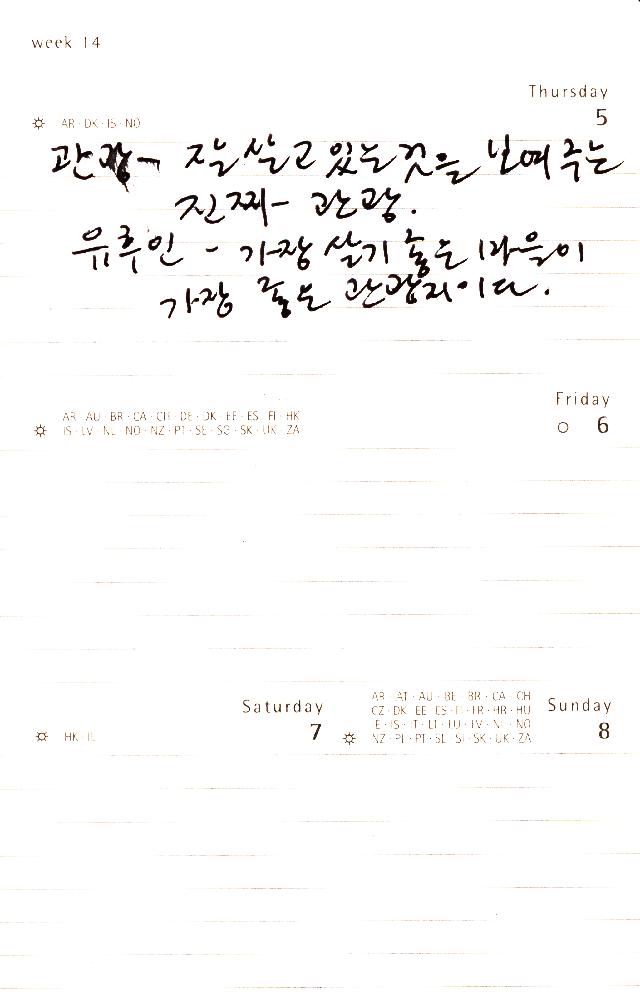 week 14
Thursday
5
AR · DK · IS · NO
관광 - 잘 살고 있는 것을 보여주는
진짜 - 관광.
유후인 - 가장 살기 좋은 마을이
가장 좋은 관광지이다.
Friday
6
AR · AU · BR · CA · CH · DE · DK · EE · ES · FI · HK
IS · LV · NL · NO · NZ · PT · SE · SG · SK · UK · ZA
Saturday
7
HK · IL
Sunday
8
AR · AT · AU · BE · BR · CA · CH
CZ · DK · EE · ES · FI · FR · HR · HU
IE · IS · IT · LT · LU · LV · NL · NO
NZ · PL · PT · SE · SI · SK · UK · ZA